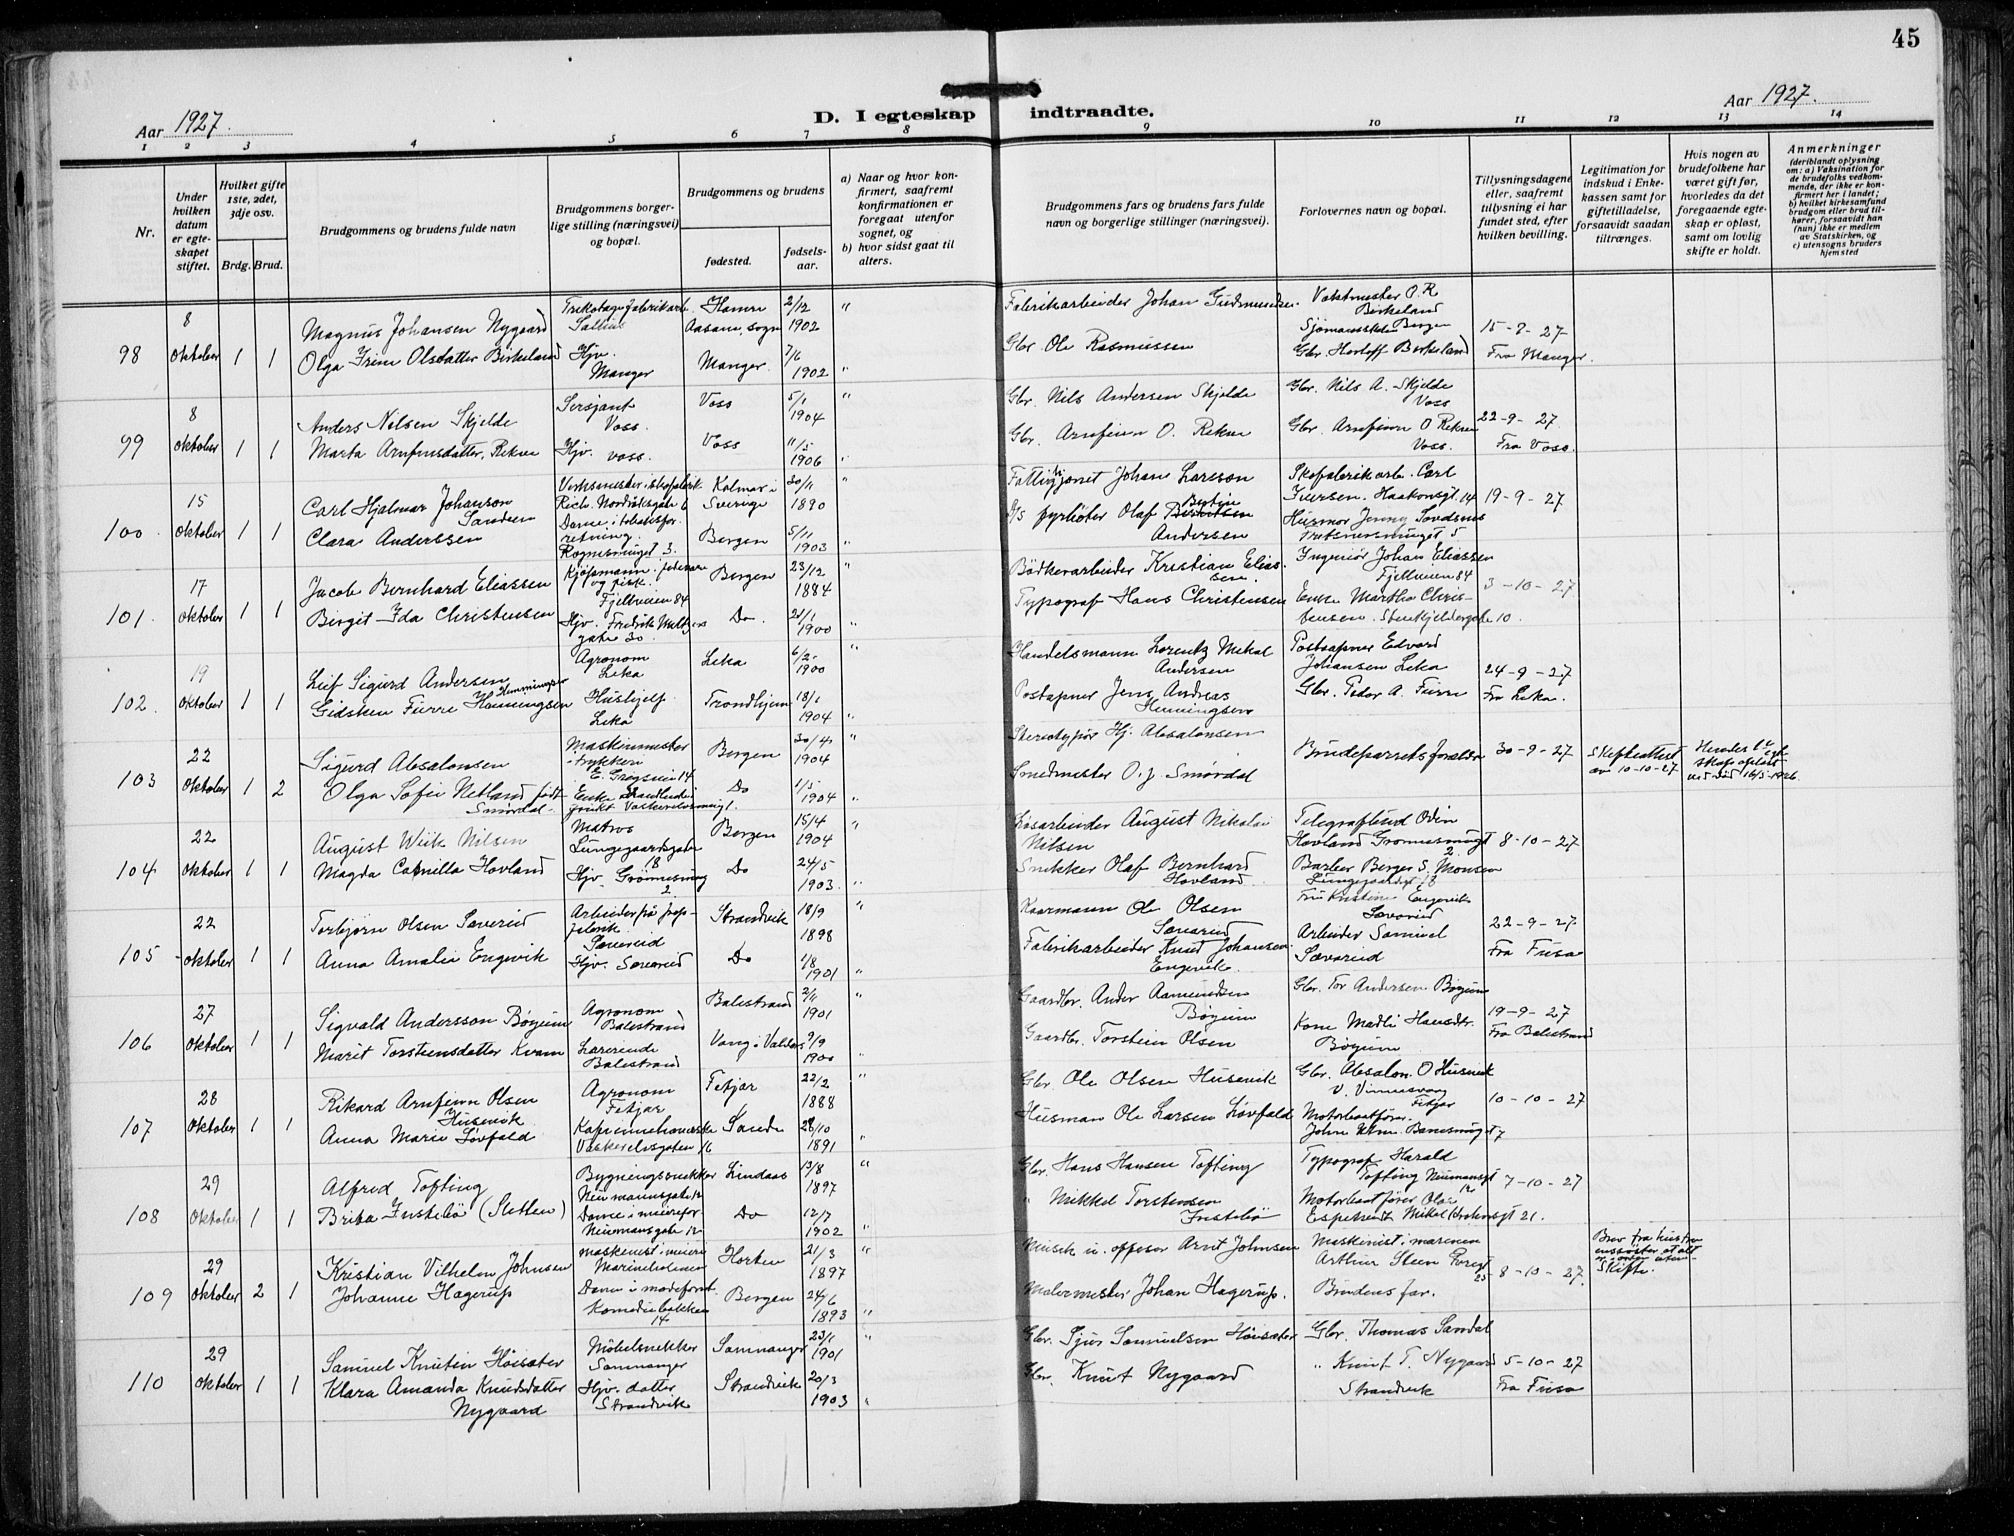 45
Aar 1927.
D. I egteskap indtraadte.
Aar 1927.
1 2 3 4 5 6 7 8 9 10 11 12 13 14
Nr.
Under hvilken datum er egteskapet stiftet.
Hvilket gifte 1ste, 2det, 3dje osv.
Brdg. Brud.
Brudgommens og brudens fulde navn
Brudgommens borgerlige stilling (næringsvei) og bopæl.
Brudgommens og brudens
fødested.
fødselsaar.
a) Naar og hvor konfirmert, saafremt konfirmationen er foregaat utenfor sognet, og
b) hvor sidst gaat til alters.
Brudgommens fars og brudens fars fulde navn og borgerlige stillinger (næringsvei).
Forlovernes navn og bopæl.
Tillysningsdagene eller, saafremt tillysning ei har fundet sted, efter hvilken bevilling.
Legitimation for indskud i Enkekassen samt for giftetilladelse, forsaavidt saadan tiltrænges.
Hvis nogen av brudefolkene har været gift før, hvorledes da det foregaaende egteskap er opløst, samt om lovlig skifte er holdt.
Anmerkninger
(deriblandt oplysning om: a) Vaksination for de brudefolks vedkommende, der ikke er konfirmert her i landet; b) hvilket kirkesamfund brudgom eller brud tilhører, forsaavidt han (hun) ikke er medlem av Statskirken, og c) utensogns bruders hjemsted
98 8 oktober 1 1
Magnus Johansen Nygaard
Hamre Aasane sogn 2/12 1902 "
Fabrikarbeider Johan Gudmundsen.
Vaktmester O. R. Birkeland
Sjømansskolen Bergen
Olga Irene Olsdatter Birkeland
Hjv. Manger
Manger. 7/6 1902 "
Gbr Ole Rasmussen
Gbr. Herloff Birkeland
Fra Manger.
99 8 oktober 1 1
Anders Nilsen Skjelde
Sersjant Voss.
Voss 5/1 1904 "
Gbr. Nils Andersen Skjelde
Gbr. Nils A. Skjelde Voss
22-9-27.
Marta Arnfinnsdatter, Rekve
Hjv. Voss.
Voss 11/5 1906 "
Gbr. Arnfinn O. Rekve
Gbr. Arnfinn O Rekve Voss.
Fra Voss.
100 15 oktober 1 1
Carl Hjalmar Johanson Sandeen
Kalmar i Sverige 30/11 1890 "
Johan Larsson
Skofabrikarb. Carl Iversen. Haakonsgt 14
19-9-27
Clara Anderssen
Rognesmuget 3.
Bergen 5/11 1903 "
fyrbøter Olaf Bertin Andersen
Husmor Jenny
101 17 oktober 1 1
Jacob Bernhard Eliassen
Fjellveien 84
Bergen 23/12 1884 "
Bødkerarbeider Kristian Eliassen.
Ingeniør Johan Eliassen Fjellveien 84
3-10-27
Birgit Ida Christensen
Hjv. Fredrik Meltzers gate 30.
Do. 21/1 1900 "
Typograf Hans Christensen
Enke Martha Christensen. Stenkjeldergate 10.
102 19 oktober 1 1
Leif Sigurd Andersen
Agronom Leka
Leka 6/2 1900 "
Handelsmann Lorentz Mekal Andersen
Postaapner Edvard Johansen Leka
24-9-27
Gidsken Fürre Hemmingsen
Hushjelp. Leka
Trondhjem 18/1 1904 "
Postapner Jens Andreas Hemingsen
Gbr. Peder A. Fürre
Fra Leka.
103 22 oktober 1 2
Sigurd Absalonsen
Maskinmester
E. Griegsvei 14
Bergen 30/4 1904 "
Stereotypør Hj. Absalonsen
Brudeparrets forældre
30-9-27
Skifteattest av 10-10-27
Olga Sofie Netland født Smørdal
Do 1/5 1904 "
Smedmester O. J. Smørdal
104 22 oktober 1 1
August Wiik Nilsen
Matros Lungegaardsgaten 18
Bergen 15/4 1904 "
Løsarbeider August Nikolai Nilsen
Telegrafbud Odin Hovland Grønnesmugt 2
8-10-27
Magda Camilla Hovland
Hjv. Grønnesmug 2
Do 24/5 1903. "
Snekker Olaf Bernhard Hovland.
Barber Berger S. Monsen
105 22 oktober 1 1
Torbjørn Olsen Sævereid
Sævereid
Strandvik 18/9 1898 "
Ole Olsen Sævareid
Fru Kristine Engevik Sævareid
22-9-27
Anna Amalia Engevik
Hjv. Sævareid
Do 1/8 1901 "
Fabrikarbeider Knut Johansen Engevik.
Arbeider Samuel Sævareid
Fra Fusa
106 27 oktober 1 1
Sigvald Andersson Bøyum
Agronom Balestrand
Balestrand 2/11 1901 "
Gaardbr. Ander Aamundsen Bøyum
Gbr. Tor Andersen Bøyum
19-9-27
Marit Torsteinsdatter Kvam
Lærerinde Balestrand
Vang i Valdres 7/9 1900 "
Gaardbr. Torstein Olsen
Kone Madli Hansdtr. Bøyum
Fra Balestrand
107 28 oktober 1 1
Rikard Arnfinn Olsen Husevik
Agronom Fitjar
Fitjar 22/2 1888 "
Gbr. Ole Olsen Husevik
Gbr. Absalon O Husevik
Fitjar
10-10-27
Anna Marie Løvfald
Vaskerelvsgaten 16
Sande 28/10 1891 "
Husman Ole Larsen Løvfald
Motorbaatfører.
108 29 oktober 1 1
Alfred Tofting
Bygningssnekker Neumannsgate 12
Lindaas 13/8 1897 "
Gbr. Hans Hansen Tofting
Typograf Harald Tofting Neumansgt 12
7-10-27
Brita Instebø (Sletten)
Dame i meierifor. Neumansgate 12
Do 12/7 1902 "
" Mikkel Torstensen Instebø
Motorbaatfører Olai
109 29 oktober 2 1
Kristian Vilhelm Johnsen
Maskinist i marinen Marineholmen
Horten 21/3 1897 "
Arnt Johnsen
Maskinist i marinen Arthur Steen
8-10-27.
Skifte.
Johanne Hagerup
Komediebakken 14
Bergen 24/6 1893 "
Malermester Johan Hagerup.
Brudens far.
110 29 oktober 1 1
Samuel Knutin Høisæter
Møbelsnekker Samnanger
Samnanger 23/1 1901 "
Gbr. Sjur Samuelsen Høisæter
Gbr. Thomas Sandal
5-10-27
Klara Amanda Knudsdatter Nygaard
Hjv. datter Strandvik
Strandvik 20/3 1903 "
Gbr. Knut Nygaard
" Knut T. Nygaard Strandvik
Fra Fusa